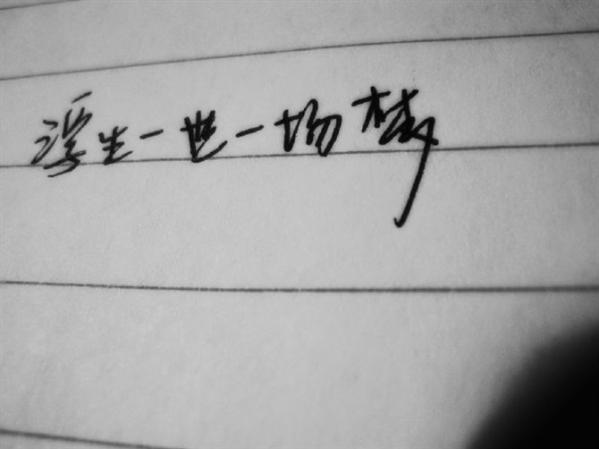 浮生一世一场梦